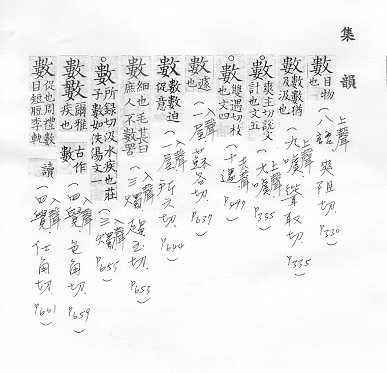 集韻
數 物目也 (八語 上聲 爽阻切 P330)
數 數數猶汲汲也 (九噳 上聲 P335)
數 爽主切說文計也文五 (九噳 上聲 P335)
數 雙遇切枚也文四 (十遇 去聲
數 速也 (一屋 入聲 蘇谷切 P637)
數數 迫促意 (一屋 入聲 所六切 P644)
數 細也毛萇曰庶人不數罟 (三燭 入聲 趨玉切 P653)
數 所錄切汲水疾也莊子數如泆湯文 (三燭 入聲 P655)
數 爾雅疾也 古作 (四覺 入聲 色角切 P659)
數 促也周禮數目短脰李軌讀 (四覺 入聲 仕角切 P661)